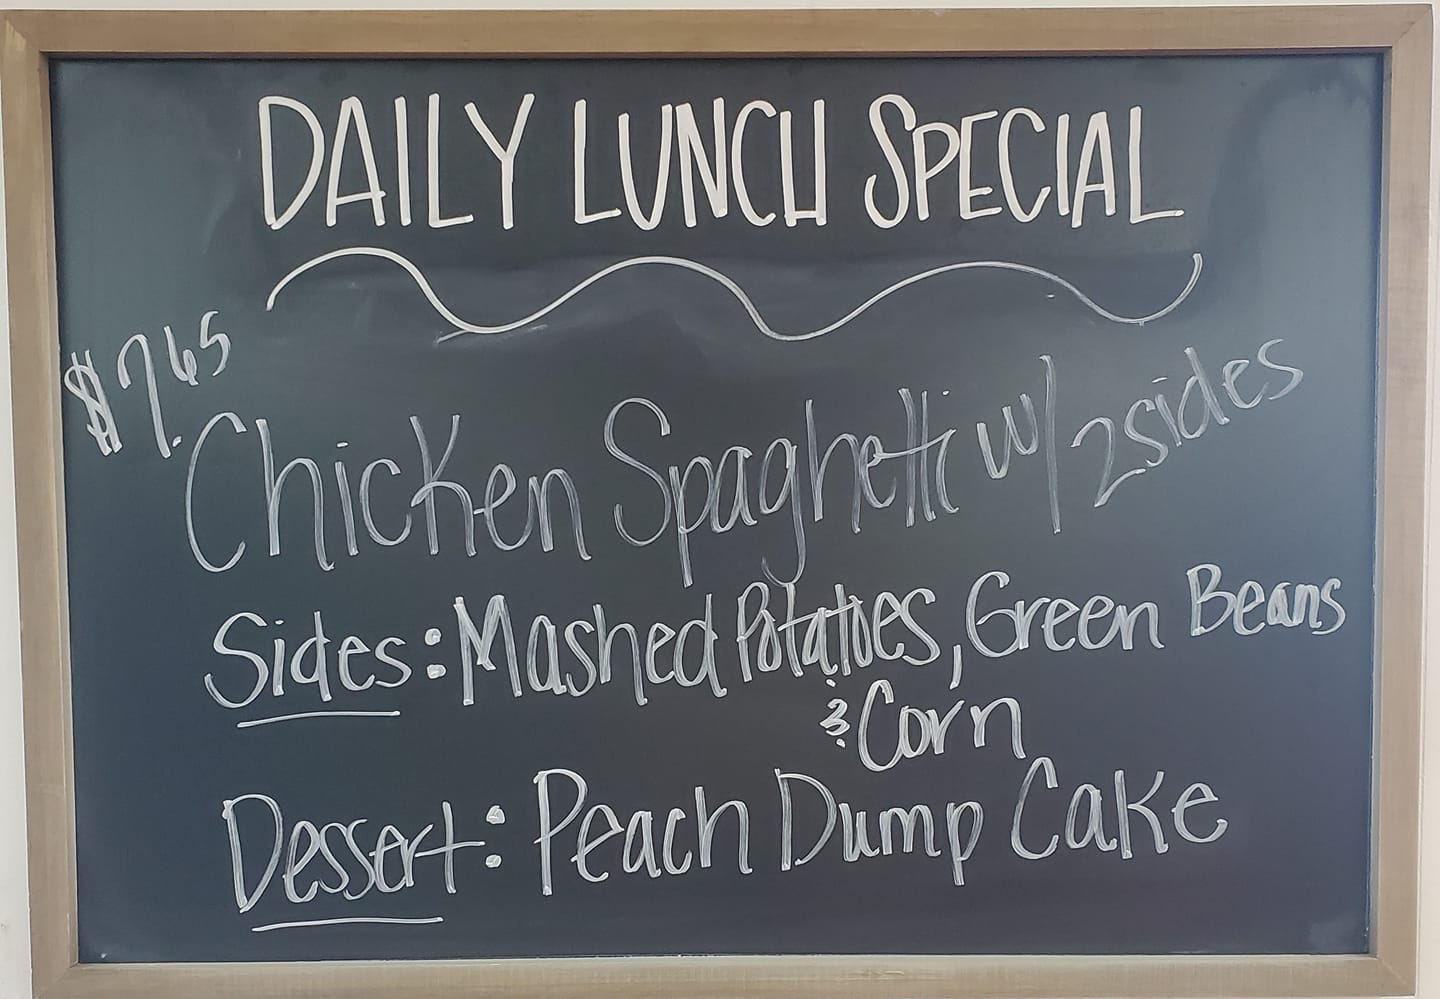 DAILY LUNCH SPECIAL
$7.65
Chicken Spaghetti w/ 2 sides
Sides: Mashed Potatoes, Green Beans
& Corn
Dessert: Peach Dump Cake